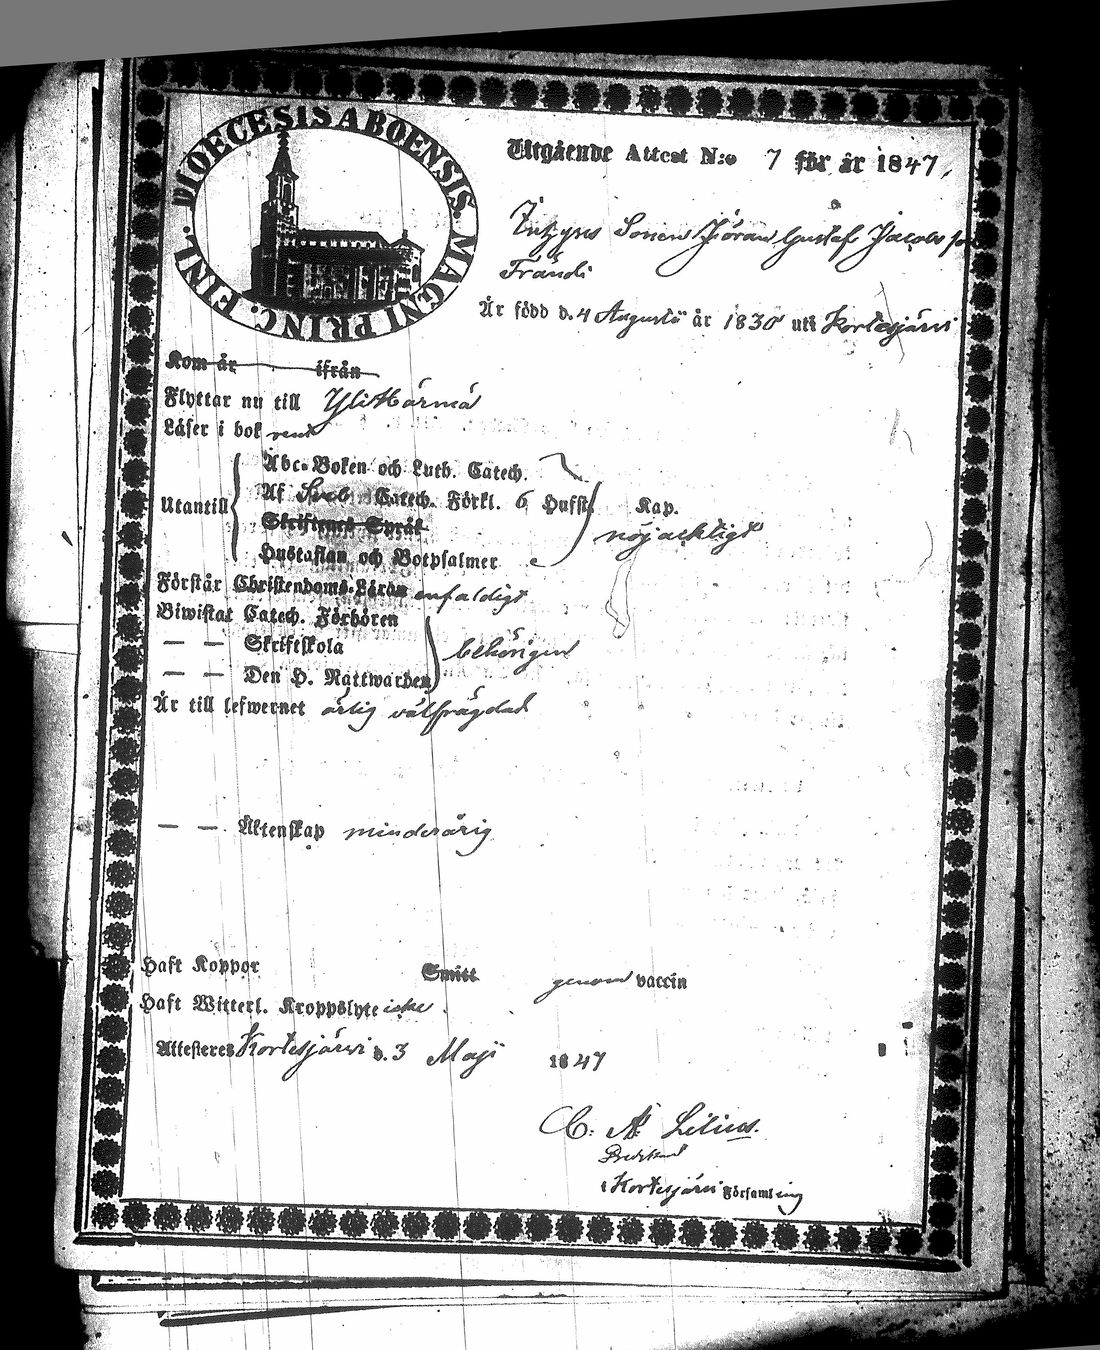 DIOECESIS ABOENSIS. MAGNI PRINC. FINL.
Utgående Attest N:o 7 för år 1847.
Sonen Jöran Gustaf Jacobs
Frändi
Är född d. 4 Augusti år 1830 uti Kortesjärvi
Kom år ifrån
Flyttar nu till Yli Härmä
Läser i bok rent
Abc-Boken och Luth. Catech.
Utantill Af Sveb Catech. Förkl. 6 Hufst. Kap.
Skriftenes Språk nöjacktigt
Hustaflan och Botpsalmer
Förstår Christendoms-Läran enfaldigt
Biwistat Catech. Förhören
— — Skriftskola behörigen
— — Den H. Nattwarden
Är till lefwernet ärlig välfrägdad
— — Äktenskap minderårig
Haft Koppor Smitt genom vaccin
Haft Witterl. Kroppslyte icke
Attesteres Kortesjärvi d. 3 Maji 1847
C. A. Lilius.
i Kortesjärvi Församling